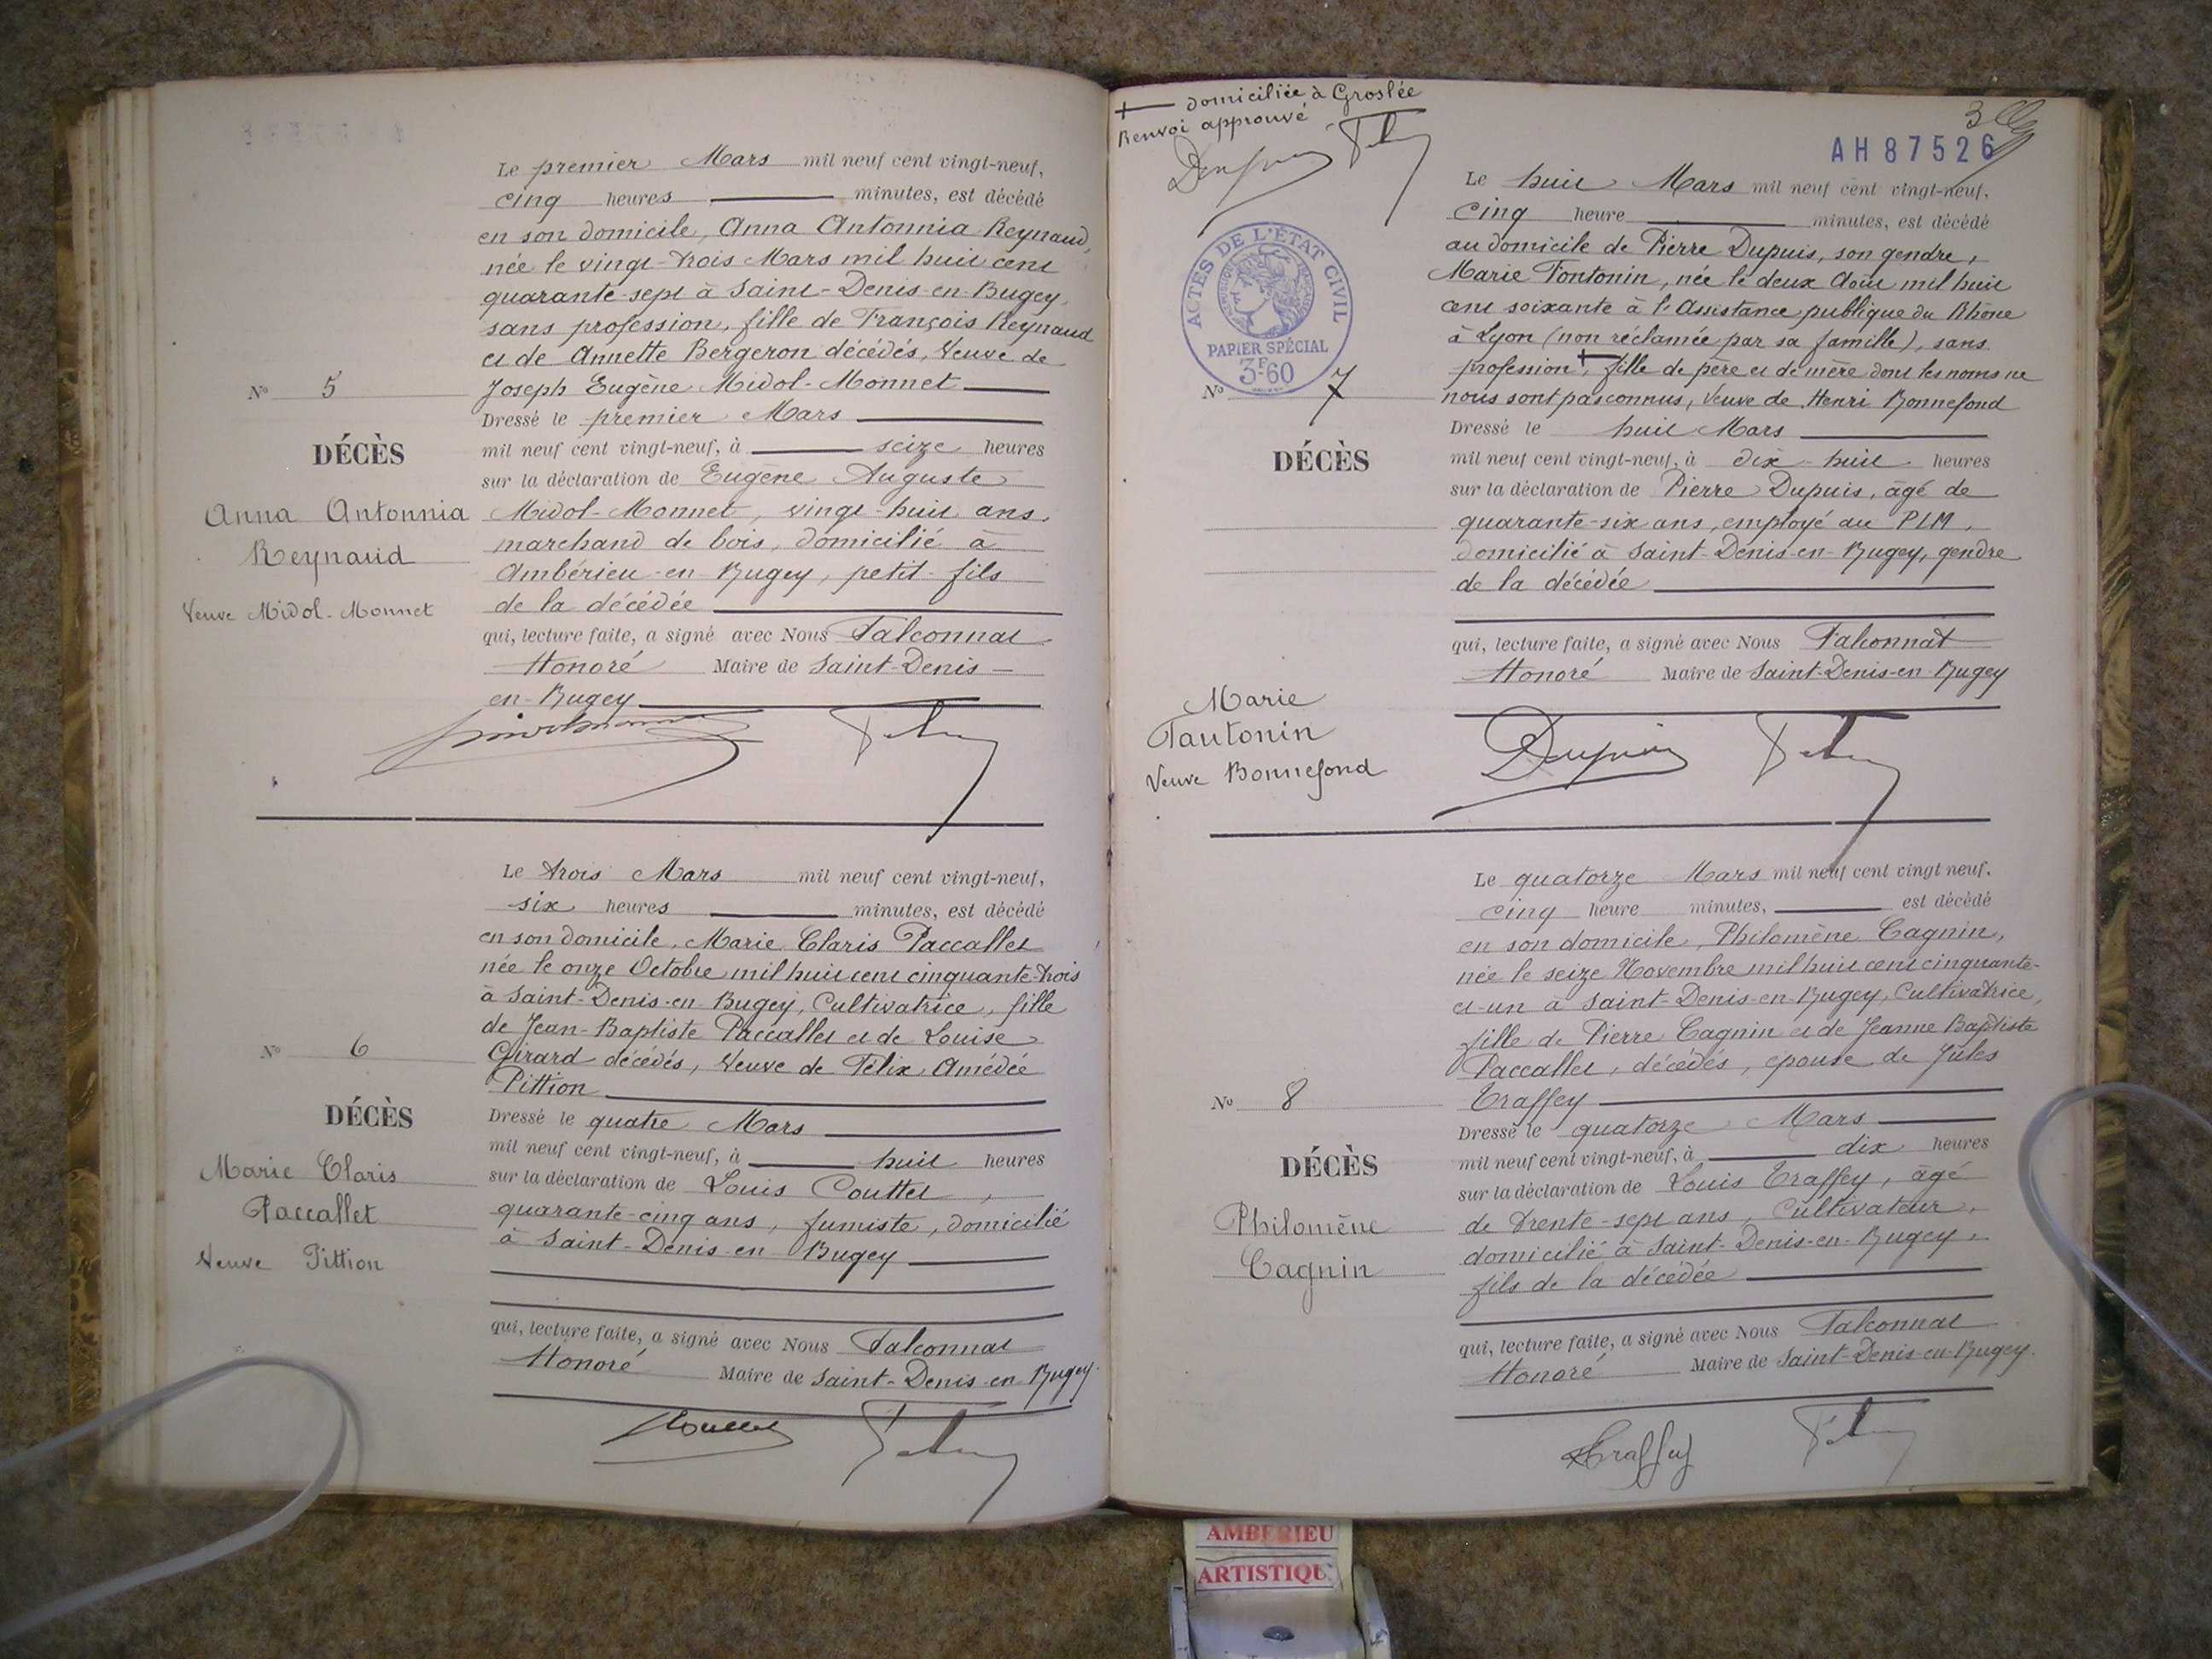 Le premier Mars mil neuf cent vingt-neuf,
cinq heures minutes, est décédé
en son domicile, Anna Antonnia Reynaud,
née le vingt-trois Mars mil huit cent
quarante-sept à Saint-Denis-en-Bugey,
sans profession, fille de François Reynaud
et de Annette Bergeron décédés, Veuve de
Joseph Eugène Midol-Monnet
Nº 5
DÉCÈS
Anna Antonnia
Reynaud
Veuve Midol-Monnet
Dressé le premier Mars
mil neuf cent vingt-neuf, à seize heures
sur la déclaration de Eugène Auguste
Midol-Monnet, vingt-huit ans,
marchand de bois, domicilié à
Ambérieu-en-Bugey, petit-fils
de la décédée
qui, lecture faite, a signé avec Nous Falconnat
Honoré Maire de Saint-Denis-
en-Bugey
Le trois Mars mil neuf cent vingt-neuf,
six heures minutes, est décédé
en son domicile, Marie Claris Paccallet
née le onze Octobre mil huit cent cinquante-trois
à Saint-Denis-en-Bugey, Cultivatrice, fille
de Jean-Baptiste Paccallet et de Louise
Girard décédés, Veuve de Félix, Amédée
Pittion
Nº 6
DÉCÈS
Marie Claris
Paccallet
Veuve Pittion
Dressé le quatre Mars
mil neuf cent vingt-neuf, à huit heures
sur la déclaration de Louis Couttet,
quarante-cinq ans, fumiste, domicilié
à Saint-Denis-en-Bugey
qui, lecture faite, a signé avec Nous Falconnat
Honoré Maire de Saint-Denis-en-Bugey.
domiciliée à Groslée
Renvoi approuvé
3
AH87526
ACTES DE L'ÉTAT CIVIL
PAPIER SPÉCIAL
3F60
Le huit Mars mil neuf cent vingt-neuf,
cinq heure minutes, est décédé
au domicile de Pierre Dupuis, son gendre,
Marie Tontonin, née le deux Août mil huit
cent soixante à l'Assistance publique du Rhône
à Lyon (non réclamée par sa famille), sans
profession +, fille de père et de mère dont les noms ne
nous sont pas connus, Veuve de Henri Bonnefond
Nº 7
DÉCÈS
Marie
Tautonin
Veuve Bonnefond
Dressé le huit Mars
mil neuf cent vingt-neuf, à dix-huit heures
sur la déclaration de Pierre Dupuis, âgé de
quarante-six ans, employé au PLM,
domicilié à Saint-Denis-en-Bugey, gendre
de la décédée
qui, lecture faite, a signé avec Nous Falconnat
Honoré Maire de Saint-Denis-en-Bugey
Dupuis
Le quatorze Mars mil neuf cent vingt neuf,
cinq heure minutes, est décédé
en son domicile, Philomène Cagnin,
née le seize Novembre mil huit cent cinquante-
et-un à Saint-Denis-en-Bugey, Cultivatrice,
fille de Pierre Cagnin et de Jeanne Baptiste
Paccallet, décédés, épouse de Jules
Traffey
Nº 8
DÉCÈS
Philomène
Cagnin
Dressé le quatorze Mars
mil neuf cent vingt-neuf, à dix heures
sur la déclaration de Louis Traffey, âgé
de trente-sept ans, Cultivateur,
domicilié à Saint-Denis-en-Bugey,
fils de la décédée
qui, lecture faite, a signé avec Nous Falconnat
Honoré Maire de Saint-Denis-en-Bugey.
Traffey
AMBERIEU
ARTISTIQU